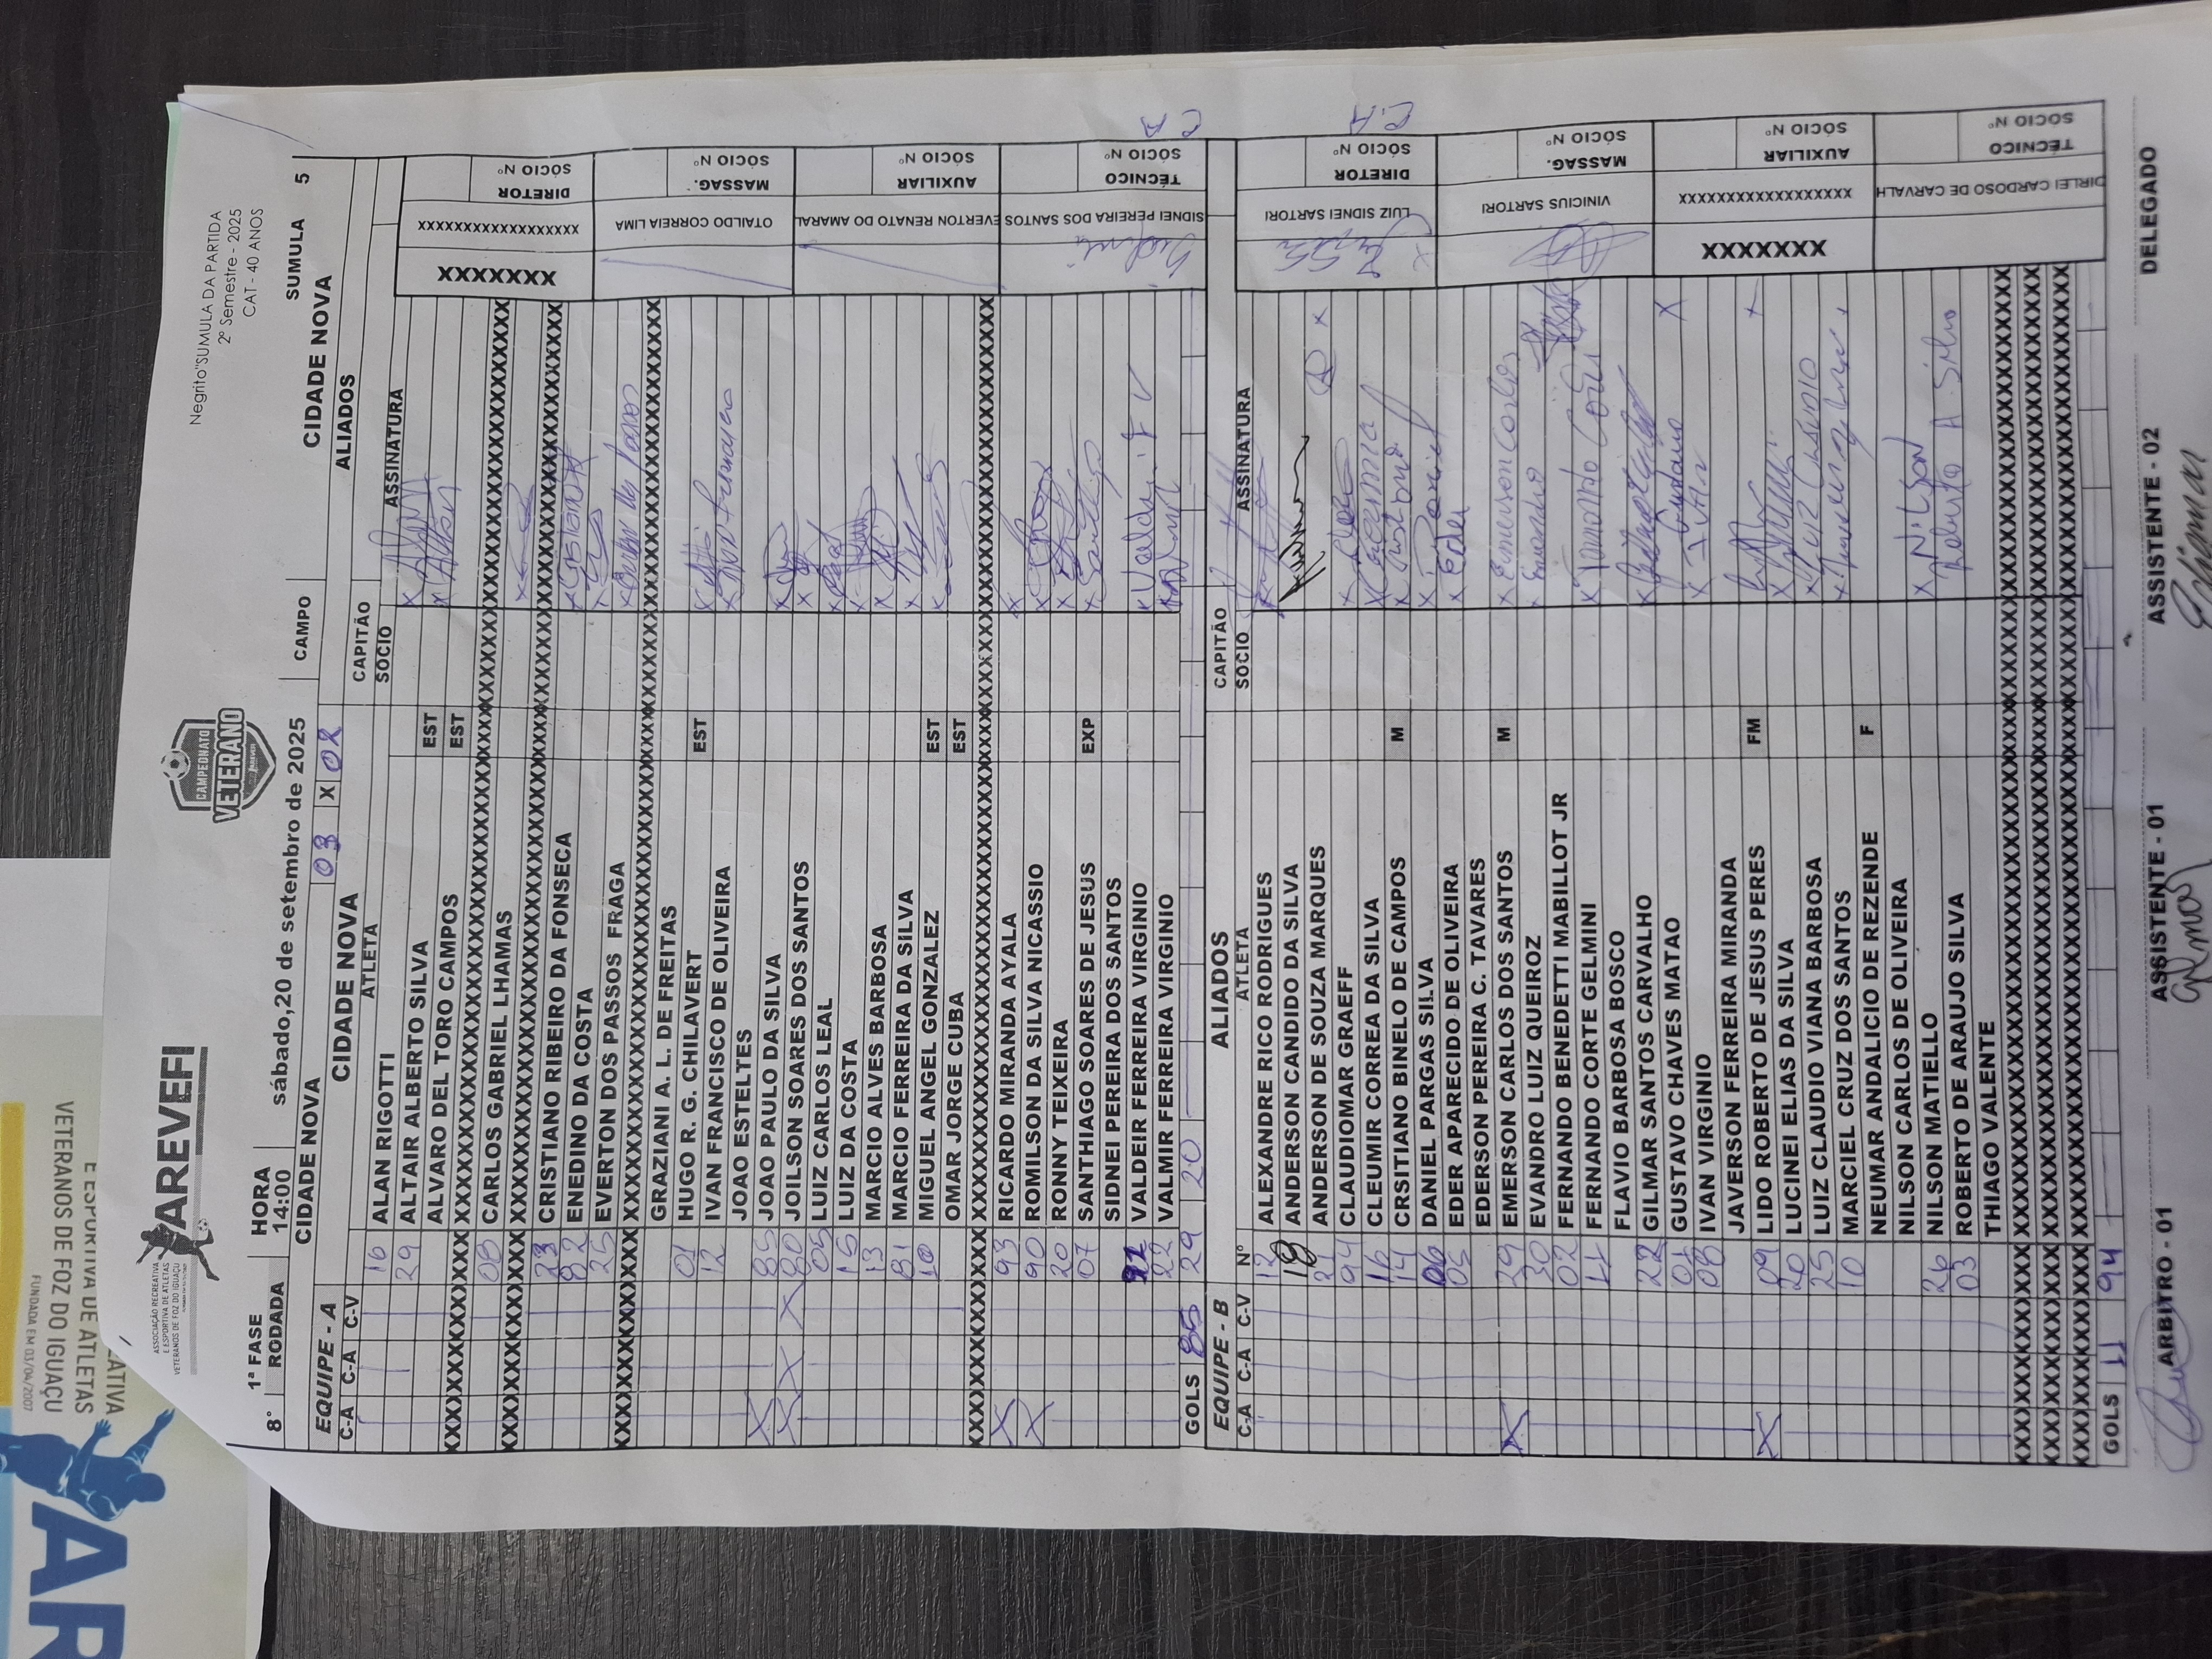 Negrito"SUMULA DA PARTIDA
2º Semestre - 2025
CAT - 40 ANOS
AREVEFI
ASSOCIAÇÃO RECREATIVA
E ESPORTIVA DE ATLETAS
VETERANOS DE FOZ DO IGUAÇU
CAMPEONATO
VETERANO
1ª FASE HORA
8° RODADA 14:00 sábado,20 de setembro de 2025 CAMPO SUMULA 5
CIDADE NOVA 03 X 02 CIDADE NOVA
EQUIPE - A CIDADE NOVA ALIADOS
C-A C-A C-V ATLETA CAPITÃO
SOCIO ASSINATURA
16 ALAN RIGOTTI
29 ALTAIR ALBERTO SILVA EST
ALVARO DEL TORO CAMPOS EST
08 CARLOS GABRIEL LHAMAS
23 CRISTIANO RIBEIRO DA FONSECA
82 ENEDINO DA COSTA
25 EVERTON DOS PASSOS FRAGA
GRAZIANI A. L. DE FREITAS
01 HUGO R. G. CHILAVERT EST
12 IVAN FRANCISCO DE OLIVEIRA
JOAO ESTELTES
X 85 JOAO PAULO DA SILVA
X X X 80 JOILSON SOARES DOS SANTOS
05 LUIZ CARLOS LEAL
15 LUIZ DA COSTA
13 MARCIO ALVES BARBOSA
81 MARCIO FERREIRA DA SILVA
10 MIGUEL ANGEL GONZALEZ EST
OMAR JORGE CUBA EST
X 93 RICARDO MIRANDA AYALA
X 90 ROMILSON DA SILVA NICASSIO
20 RONNY TEIXEIRA
07 SANTHIAGO SOARES DE JESUS EXP
SIDNEI PEREIRA DOS SANTOS
92 VALDEIR FERREIRA VIRGINIO
22 VALMIR FERREIRA VIRGINIO
GOLS 85 29 20
XXXXXXX XXXXXXXXXXXXXXXXXXX DIRETOR SÓCIO Nº
OTAILDO CORREIA LIMA MASSAG. SÓCIO Nº
EVERTON RENATO DO AMARAL AUXILIAR SÓCIO Nº
SIDNEI PEREIRA DOS SANTOS TÉCNICO SÓCIO Nº
CA
EQUIPE - B ALIADOS CAPITÃO
C-A C-A C-V Nº ATLETA SOCIO ASSINATURA
12 ALEXANDRE RICO RODRIGUES
18 ANDERSON CANDIDO DA SILVA
21 ANDERSON DE SOUZA MARQUES
94 CLAUDIOMAR GRAEFF
16 CLEUMIR CORREA DA SILVA
14 CRSITIANO BINELO DE CAMPOS M
06 DANIEL PARGAS SILVA
05 EDER APARECIDO DE OLIVEIRA
EDERSON PEREIRA C. TAVARES
X 29 EMERSON CARLOS DOS SANTOS M
30 EVANDRO LUIZ QUEIROZ
02 FERNANDO BENEDETTI MABILLOT JR
11 FERNANDO CORTE GELMINI
FLAVIO BARBOSA BOSCO
22 GILMAR SANTOS CARVALHO
01 GUSTAVO CHAVES MATAO
08 IVAN VIRGINIO
JAVERSON FERREIRA MIRANDA
X 09 LIDO ROBERTO DE JESUS PERES FM
20 LUCINEI ELIAS DA SILVA
25 LUIZ CLAUDIO VIANA BARBOSA
10 MARCIEL CRUZ DOS SANTOS
NEUMAR ANDALICIO DE REZENDE F
NILSON CARLOS DE OLIVEIRA
26 NILSON MATIELLO
03 ROBERTO DE ARAUJO SILVA
THIAGO VALENTE
GOLS 11 94
LUIZ SIDNEI SARTORI DIRETOR SÓCIO Nº
C.A
VINICIUS SARTORI MASSAG. SÓCIO Nº
XXXXXXX XXXXXXXXXXXXXXXXXXX AUXILIAR SÓCIO Nº
DIRLEI CARDOSO DE CARVALH TÉCNICO SÓCIO Nº
ARBITRO - 01 ASSISTENTE - 01 ASSISTENTE - 02 DELEGADO
E ESPORTIVA DE ATLETAS
VETERANOS DE FOZ DO IGUAÇU
FUNDADA EM 03/04/2007
AR